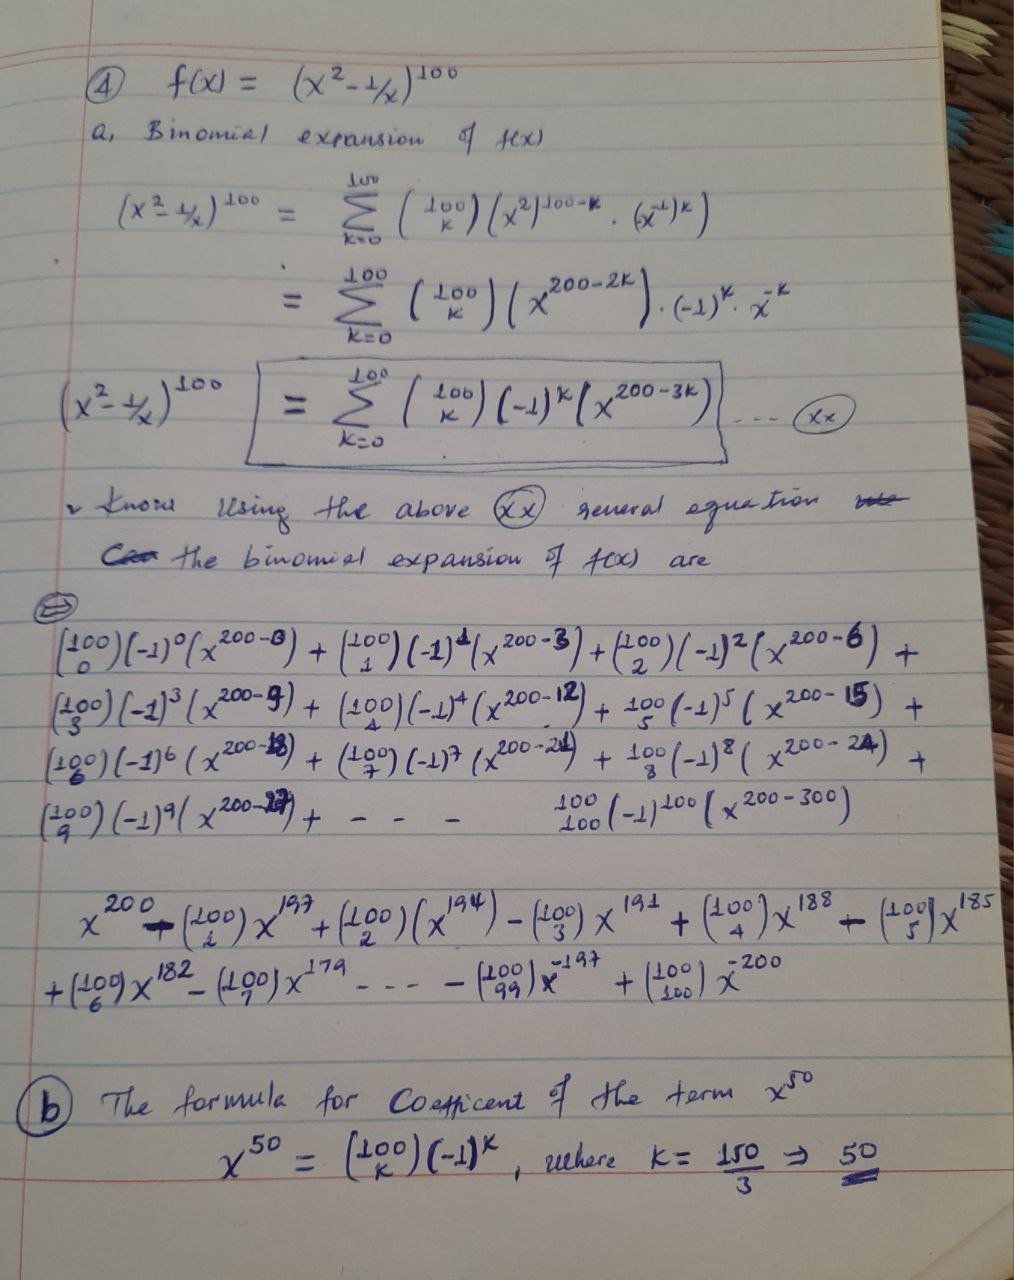 ④ f(x) = (x² - 1/x)¹⁰⁰
a, Binomial expansion of f(x)
(x² - 1/x)¹⁰⁰ = ∑_{k=0}^{100} (100 k) (x²)^{100-k} · (x⁻¹)^k)
= ∑_{k=0}^{100} (100 k) (x^{200-2k}) · (-1)^k · x^{-k}
(x² - 1/x)¹⁰⁰ = ∑_{k=0}^{100} (100 k) (-1)^k (x^{200-3k}) ---- (xx)
Know Using the above (xx) general equation
the binomial expansion of f(x) are
⇒
(100 0)(-1)⁰(x^{200-0}) + (100 1)(-1)¹(x^{200-3}) + (100 2)(-1)²(x^{200-6}) +
(100 3)(-1)³(x^{200-9}) + (100 4)(-1)⁴(x^{200-12}) + 100 5 (-1)⁵(x^{200-15}) +
(100 6)(-1)⁶(x^{200-18}) + (100 7)(-1)⁷(x^{200-21}) + 100 8 (-1)⁸(x^{200-24}) +
(100 9)(-1)⁹(x^{200-27}) + - - - 100 100 (-1)¹⁰⁰(x^{200-300})
x²⁰⁰ - (100 1) x¹⁹⁷ + (100 2)(x¹⁹⁴) - (100 3) x¹⁹¹ + (100 4) x¹⁸⁸ - (100 5) x¹⁸⁵
+ (100 6) x¹⁸² - (100 7) x¹⁷⁹ - - - - (100 99) x⁻¹⁹⁷ + (100 100) x⁻²⁰⁰
(b) The formula for Coefficent of the term x⁵⁰
x⁵⁰ = (100 k)(-1)^k, where k = 150/3 ⇒ 50